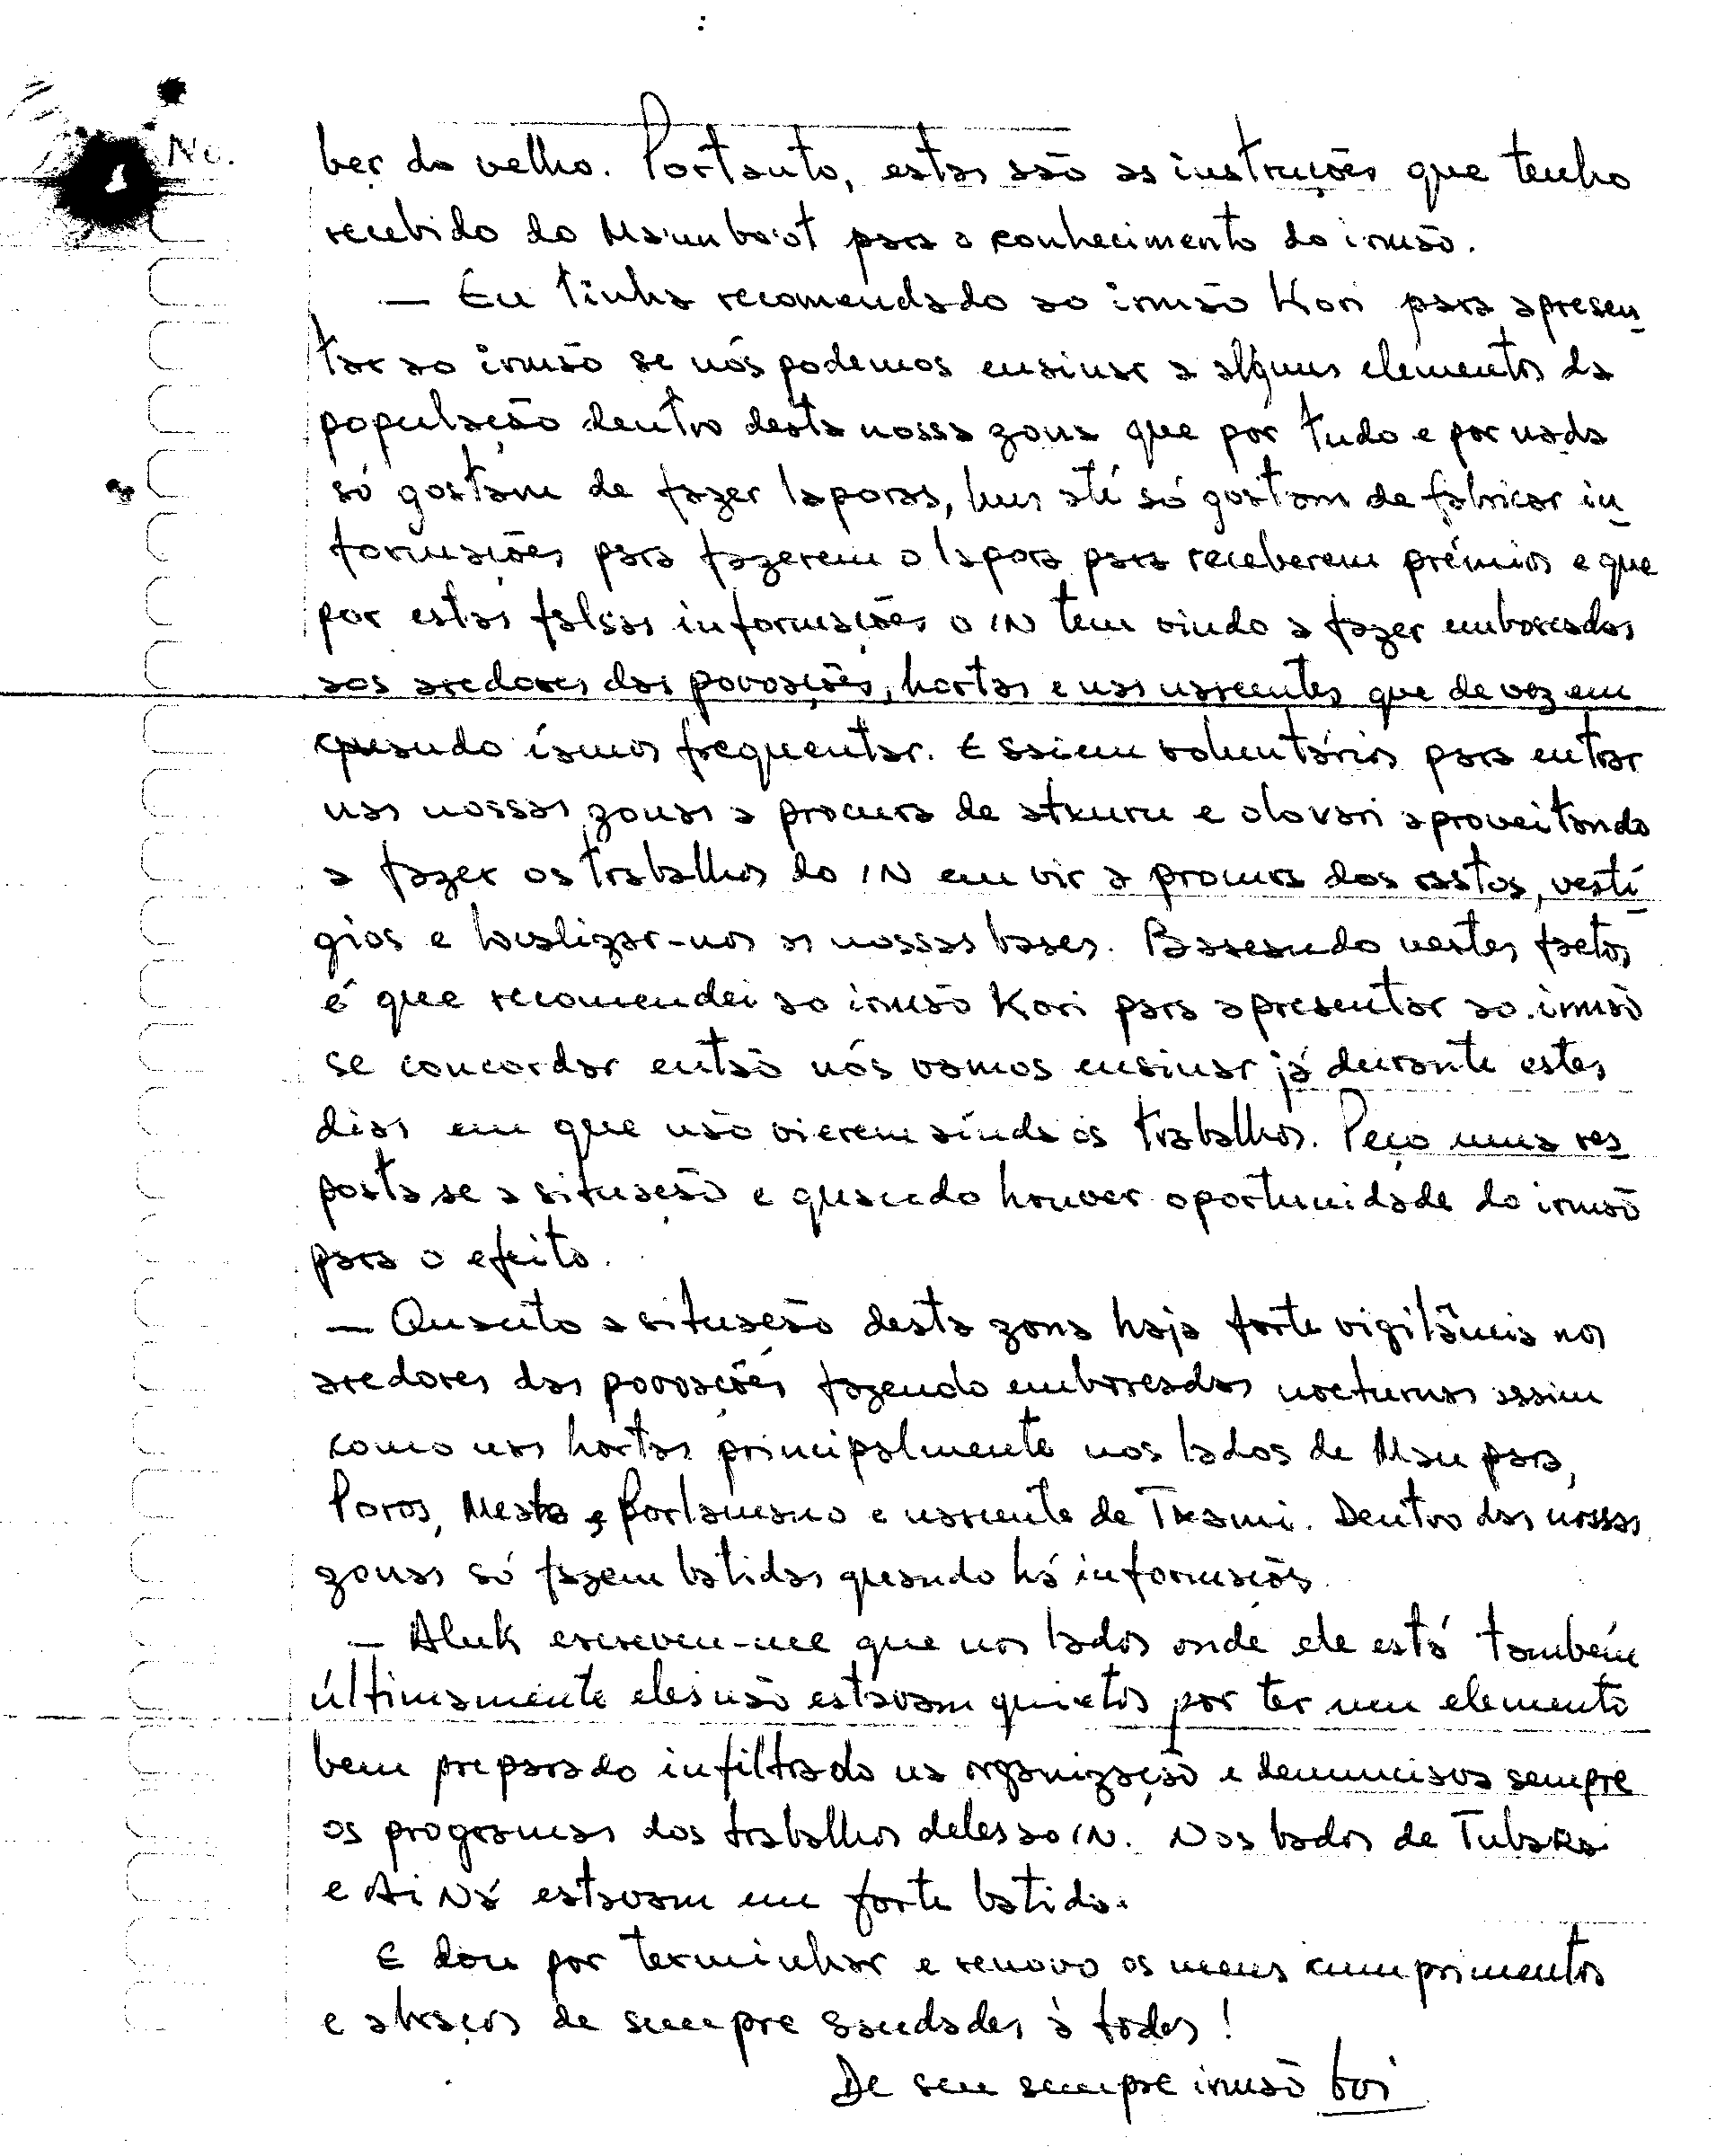 No.
ber do velho. Portanto, estas são as instruções que tenho
recebido do Maunbo'ot para o conhecimento do irmão.
— Eu tinha recomendado ao irmão Kori para apresen-
tar ao irmão se nós podemos ensinar a alguns elementos da
população dentro desta nossa zona que por tudo e por nada
só gostam de fazer laporas, huns até só gostam de fabricar in-
formações para fazerem o lapora para receberem prémios e que
por estas falsas informações o IN tem vindo a fazer emboscadas
aos aredores das povoações, hortas e nas nascentes que de vez em
quando íamos frequentar. E saiem voluntários para entrar
nas nossas zonas a procura de atxuru e olovari aproveitando
a fazer os trabalhos do IN em vir a procura dos rastos, vestí-
gios e localizar-nos as nossas bases. Baseando nestes factos
é que recomendei ao irmão Kori para apresentar ao irmão
se concordar então nós vamos ensinar já durante estes
dias em que não vierem ainda os trabalhos. Peço uma res-
posta se a situação e quando houver oportunidade do irmão
para o efeito.
— Quanto a situação desta zona haja forte vigilância nos
aredores das povoações fazendo emboscadas nocturnas assim
como nas hortas principalmente nos lados de Maupara,
Poros, Mesta e Porlamano e nascente de Txami. Dentro das nossas
zonas só fazem batidas quando há informações.
— Aluk escreveu-me que nos lados onde ele está também
últimamente eles não estavam quietos por ter um elemento
bem preparado infiltrado na organização e denunciava sempre
os programas dos trabalhos deles ao IN. Nos lados de Tubakai
e Ai Ná estavam em forte batida.
E dou por terminhar e renovo os meus cumprimentos
e abraços de sempre saudades à todos!
De seu sempre irmão boi